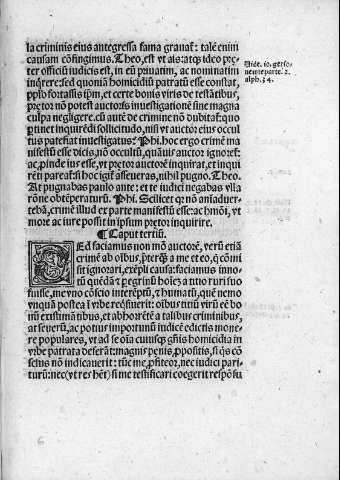 la criminis eius antegressa fama grauat: talē enim
causam cōfingimus. Theo, est vt ais: atqꝫ ideo prę-
ter officiū iudicis est, in eū priuatim, ac nominatim
inqrere: sed quoniā homicidiū patratū esse constat,
ppl'o fortassis ipm, et certe bonis viris de testātibus,
pretor nō potest auctoris inuestigationē sine magna
culpa negligere. cū aūt de crimine nō dubitat: quo
ptinet inquirēdi sollicitudo, nisi vt auctor eius occul
tus patefiat inuestigatus? Phi. hoc ergo crimē ma
nifestū esse dicis, nō occultū, quāuis auctor ignoret:
ac, pinde ius esse, vt pretor auctorē inquirat, et inqui
rēti pareat: si hoc igit asseueras, nihil pugno. Theo.
At pugnabas paulo ante: et te iudici negabas vlla
rōne obtēperaturū. Phi. Scilicet qr nō aīaduer-
tebā, crimē illud ex parte manifestū esse: ac hmōi, vt
more ac iure possit in ipsum pretor inquirere.
¶ Caput tertiū.
Sed faciamus non mō auctorē, verū etiā
crimē ab oībus, pterq a me et eo, q cōmi
sit ignorari, exēpli causa: faciamus inno-
tū quēdā et pegrinū hoiez a tito ruri suo
fuisse, me vno cōscio interēptū, et humatū, quē nemo
vnquā postea i vrbe reqsuerit: oībus titū virū eē bo
nū existimātibus, et abhorrētē a talibus criminibus,
at seuerū, ac potius importunū iudicē edictis mone-
re populares, vt ad se oīa cuiusqꝫ gnīis homicidia in
vrbe patrata deferāt: magnis penis, ppositis, si qs cō
scius nō indicauerit: tūc me, pfiteor, nec iudici pari-
turū: nec (vt res hēt) si me testificari coegerit respōsu
Vide. io. gerso-
nem in parte. 2.
alph. 34.
6